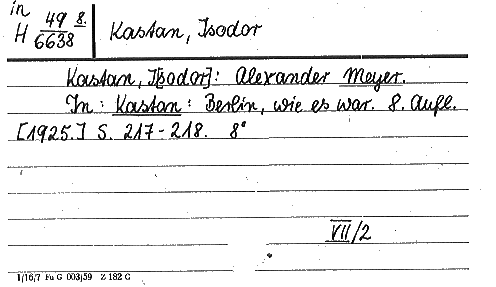 in
H 49 8.
6638
Kastan, Isodor
Kastan, I[sodor]: Alexander Meyer.
In: Kastan: Berlin, wie es war. 8. Aufl.
[1925.] S. 217-218. 8°
VII/2
1/16/7 Fu G 003/59 Z 182 G